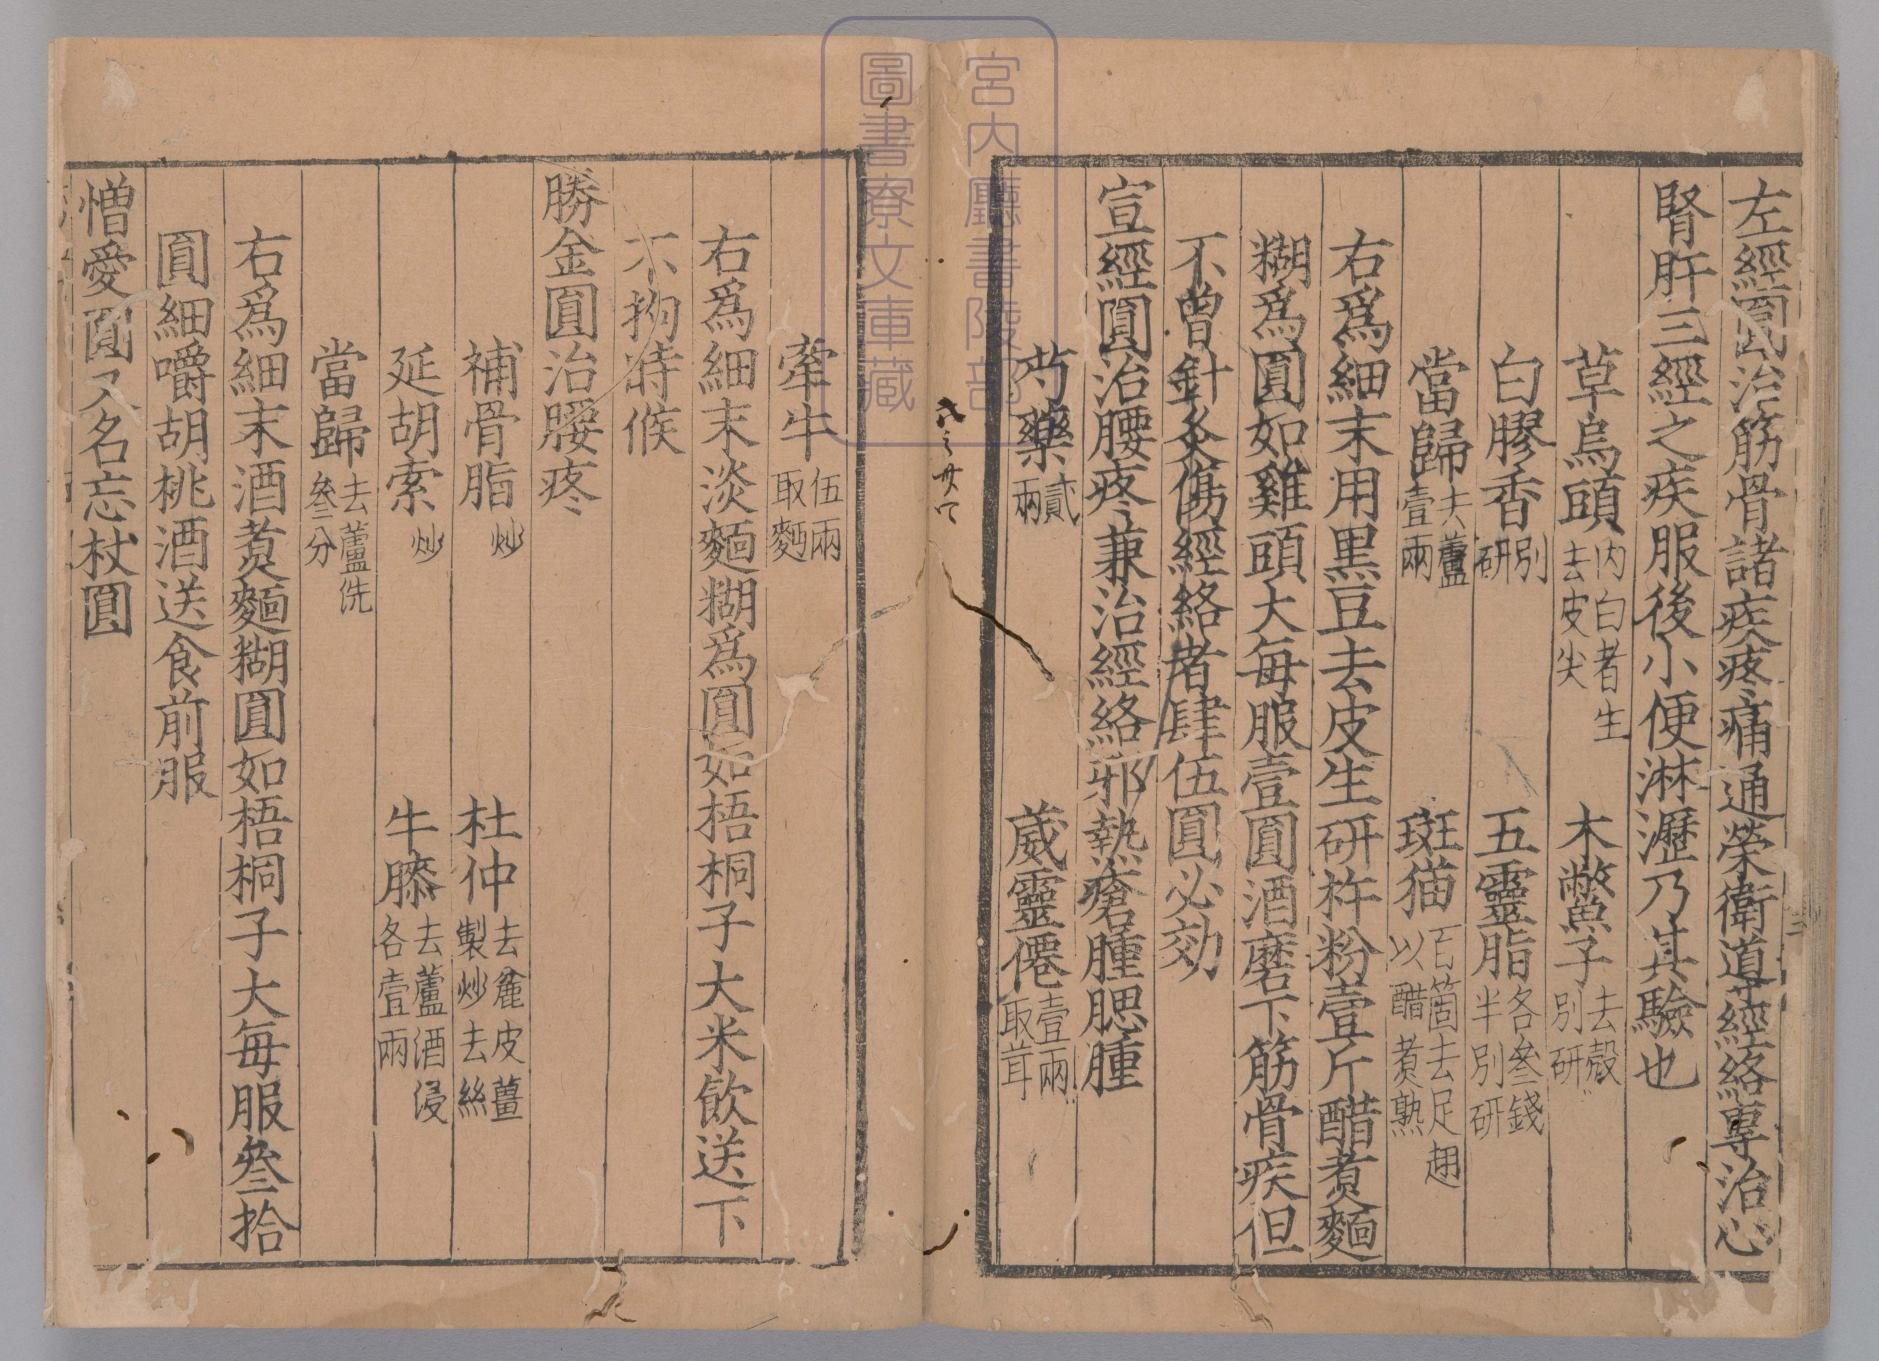 左經圓治筋骨諸疾疼痛通榮衛導經絡專治心
腎肝三經之疾服後小便淋瀝乃其驗也
草烏頭內白者生去皮尖 木鱉子去殼別研
白膠香別研 五靈脂各叄錢半別研
當歸去蘆壹兩 斑猫百箇去足翅以醋煮熟
右爲細末用黑豆去皮生研杵粉壹斤醋煮麵
糊爲圓如雞頭大每服壹圓酒磨下筋骨疾但
不曾針灸傷經絡者肆伍圓必効
宣經圓治腰疼兼治經絡邪熱瘡腫腮腫
芍藥貳兩 葳靈僊壹兩取茸
牽牛伍兩取麪
右爲細末淡麵糊爲圓如梧桐子大米飲送下
不拘時候
勝金圓治腰疼
補骨脂炒 杜仲去麄皮薑製炒去絲
延胡索炒 牛膝去蘆酒浸各壹兩
當歸去蘆洗叄分
右爲細末酒煮麵糊圓如梧桐子大每服叄拾
圓細嚼胡桃酒送食前服
憎愛圓又名忘杖圓
宮内廳書陵部
圖書寮文庫藏